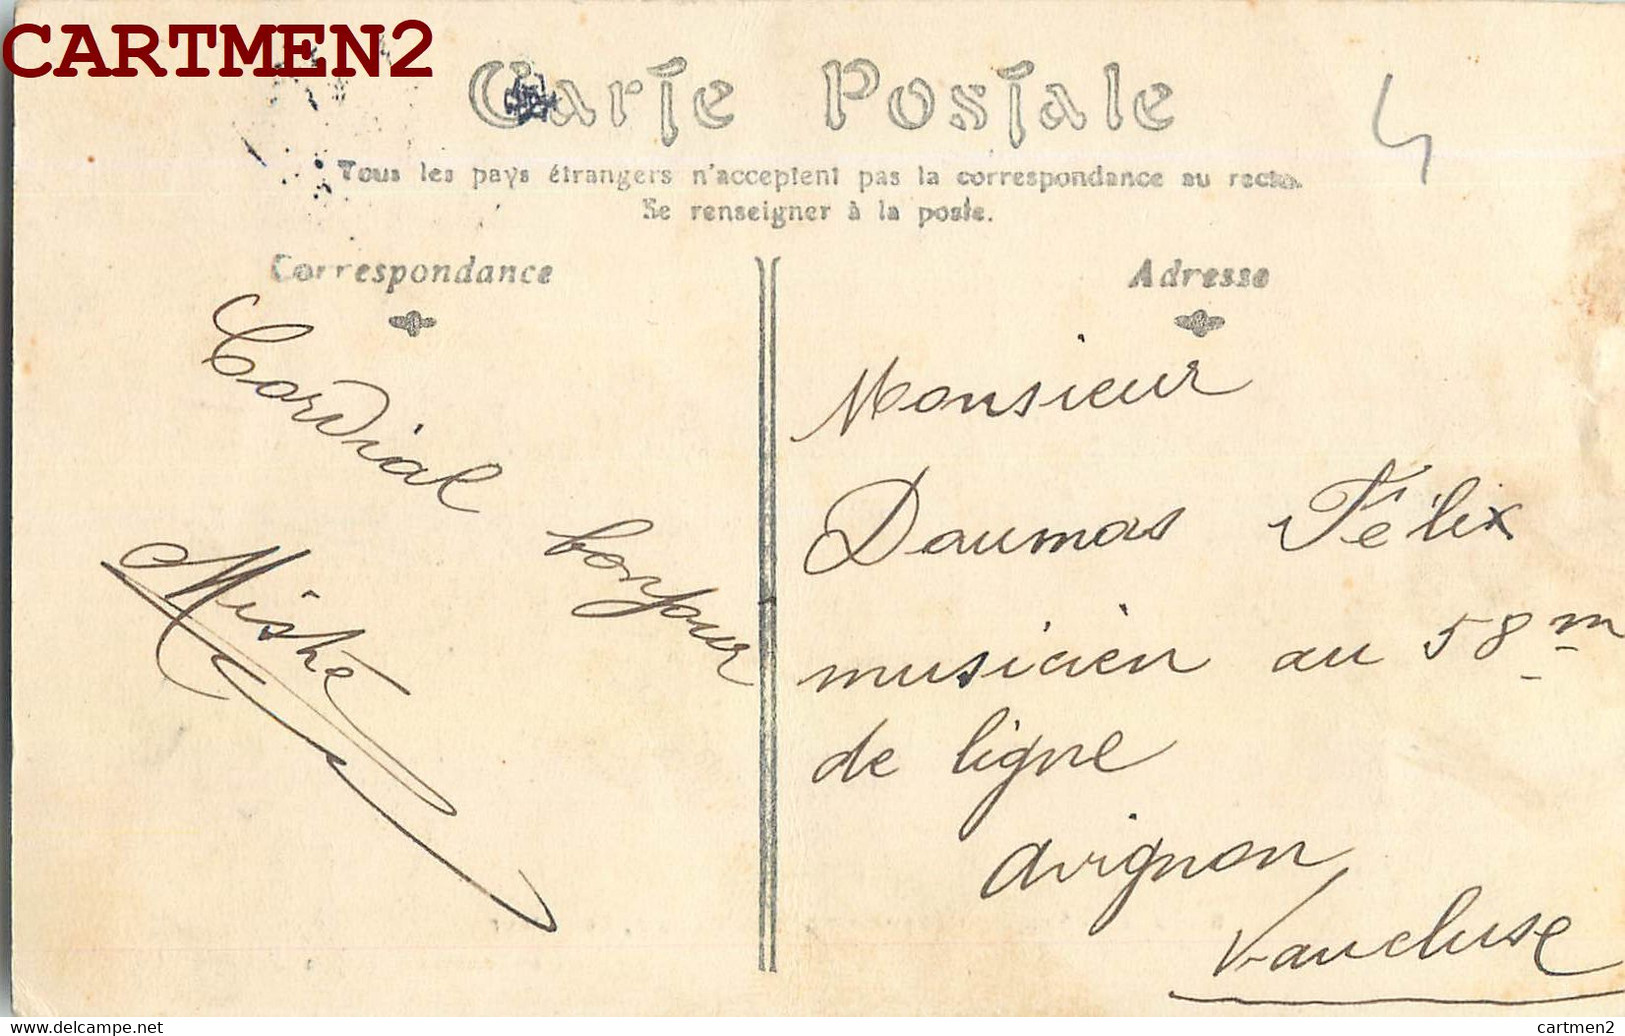 CARTMEN2
Carte Postale
Tous les pays étrangers n'acceptent pas la correspondance au recto.
Se renseigner à la poste.
Correspondance
Cordial
bonjour
Adresse
Monsieur
Daumas Félix
musicien au 58m
de ligne
Avignon
Vaucluse
4
www.delcampe.net
cartmen2